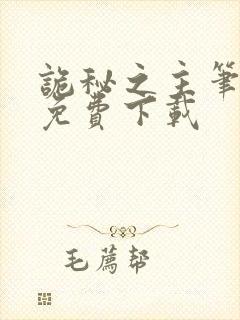 詭秘之主筆
免費下載
毛薦幣